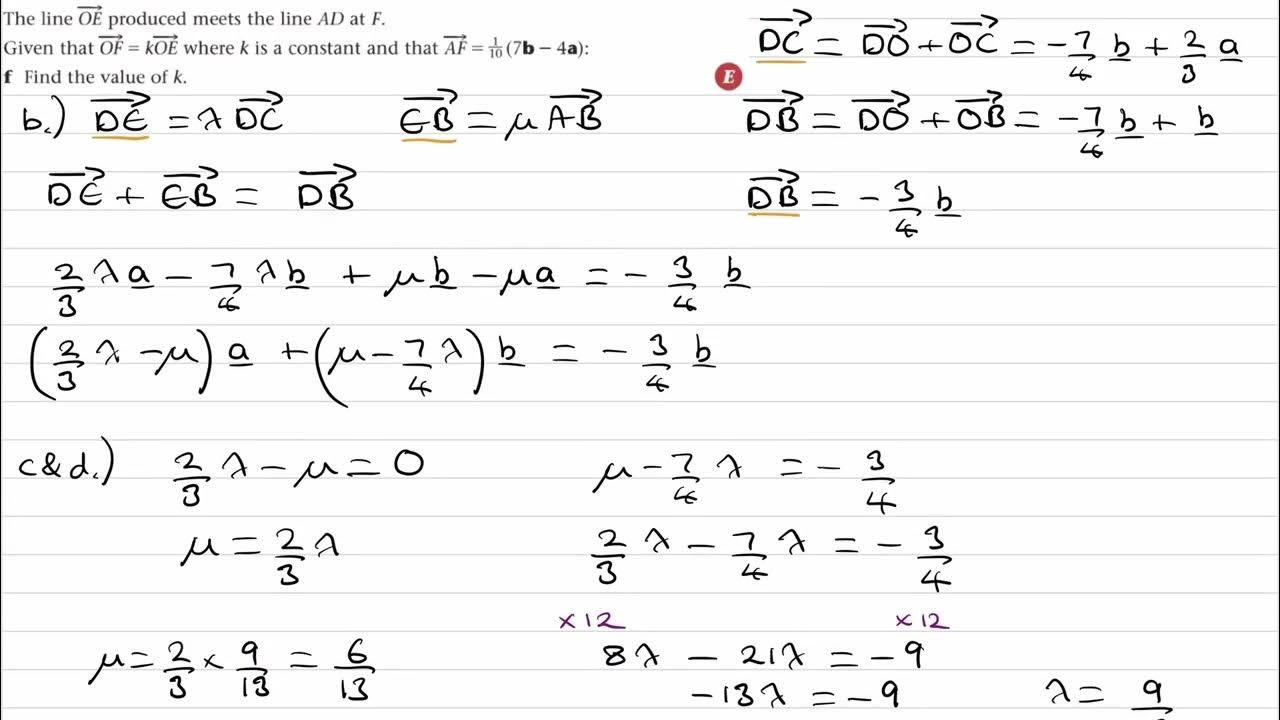 The line $\overrightarrow{OE}$ produced meets the line AD at F.
Given that $\overrightarrow{OF} = k\overrightarrow{OE}$ where k is a constant and that $\overrightarrow{AF} = \frac{1}{10}(7\mathbf{b} - 4\mathbf{a})$:
f Find the value of k.
E
$\overrightarrow{DC} = \overrightarrow{DO} + \overrightarrow{OC} = -\frac{7}{4}\underline{b} + \frac{2}{3}\underline{a}$
b.) $\overrightarrow{DE} = \lambda\overrightarrow{DC}$ $\overrightarrow{EB} = \mu\overrightarrow{AB}$ $\overrightarrow{DB} = \overrightarrow{DO} + \overrightarrow{OB} = -\frac{7}{4}\underline{b} + \underline{b}$
$\overrightarrow{DE} + \overrightarrow{EB} = \overrightarrow{DB}$ $\overrightarrow{DB} = -\frac{3}{4}\underline{b}$
$\frac{2}{3}\lambda\underline{a} - \frac{7}{4}\lambda\underline{b} + \mu\underline{b} - \mu\underline{a} = -\frac{3}{4}\underline{b}$
$\left(\frac{2}{3}\lambda - \mu\right)\underline{a} + \left(\mu - \frac{7}{4}\lambda\right)\underline{b} = -\frac{3}{4}\underline{b}$
c&d.) $\frac{2}{3}\lambda - \mu = 0$ $\mu - \frac{7}{4}\lambda = -\frac{3}{4}$
$\mu = \frac{2}{3}\lambda$ $\frac{2}{3}\lambda - \frac{7}{4}\lambda = -\frac{3}{4}$
×12 ×12
$\mu = \frac{2}{3} \times \frac{9}{13} = \frac{6}{13}$ $8\lambda - 21\lambda = -9$
$-13\lambda = -9$ $\lambda = 9$